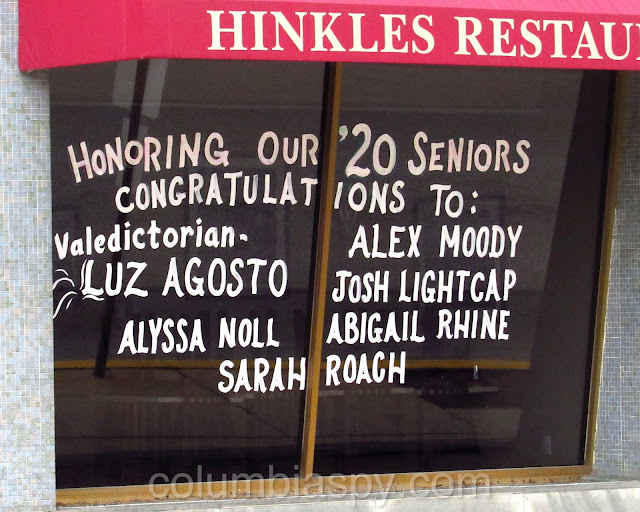 HINKLES
HONORING OUR '20 SENIORS
CONGRATULATIONS TO:
Valedictorian-
LUZ AGOSTO
ALEX MOODY
JOSH LIGHTCAP
ALYSSA NOLL
ABIGAIL RHINE
SARAH ROACH
columbiaspy.com